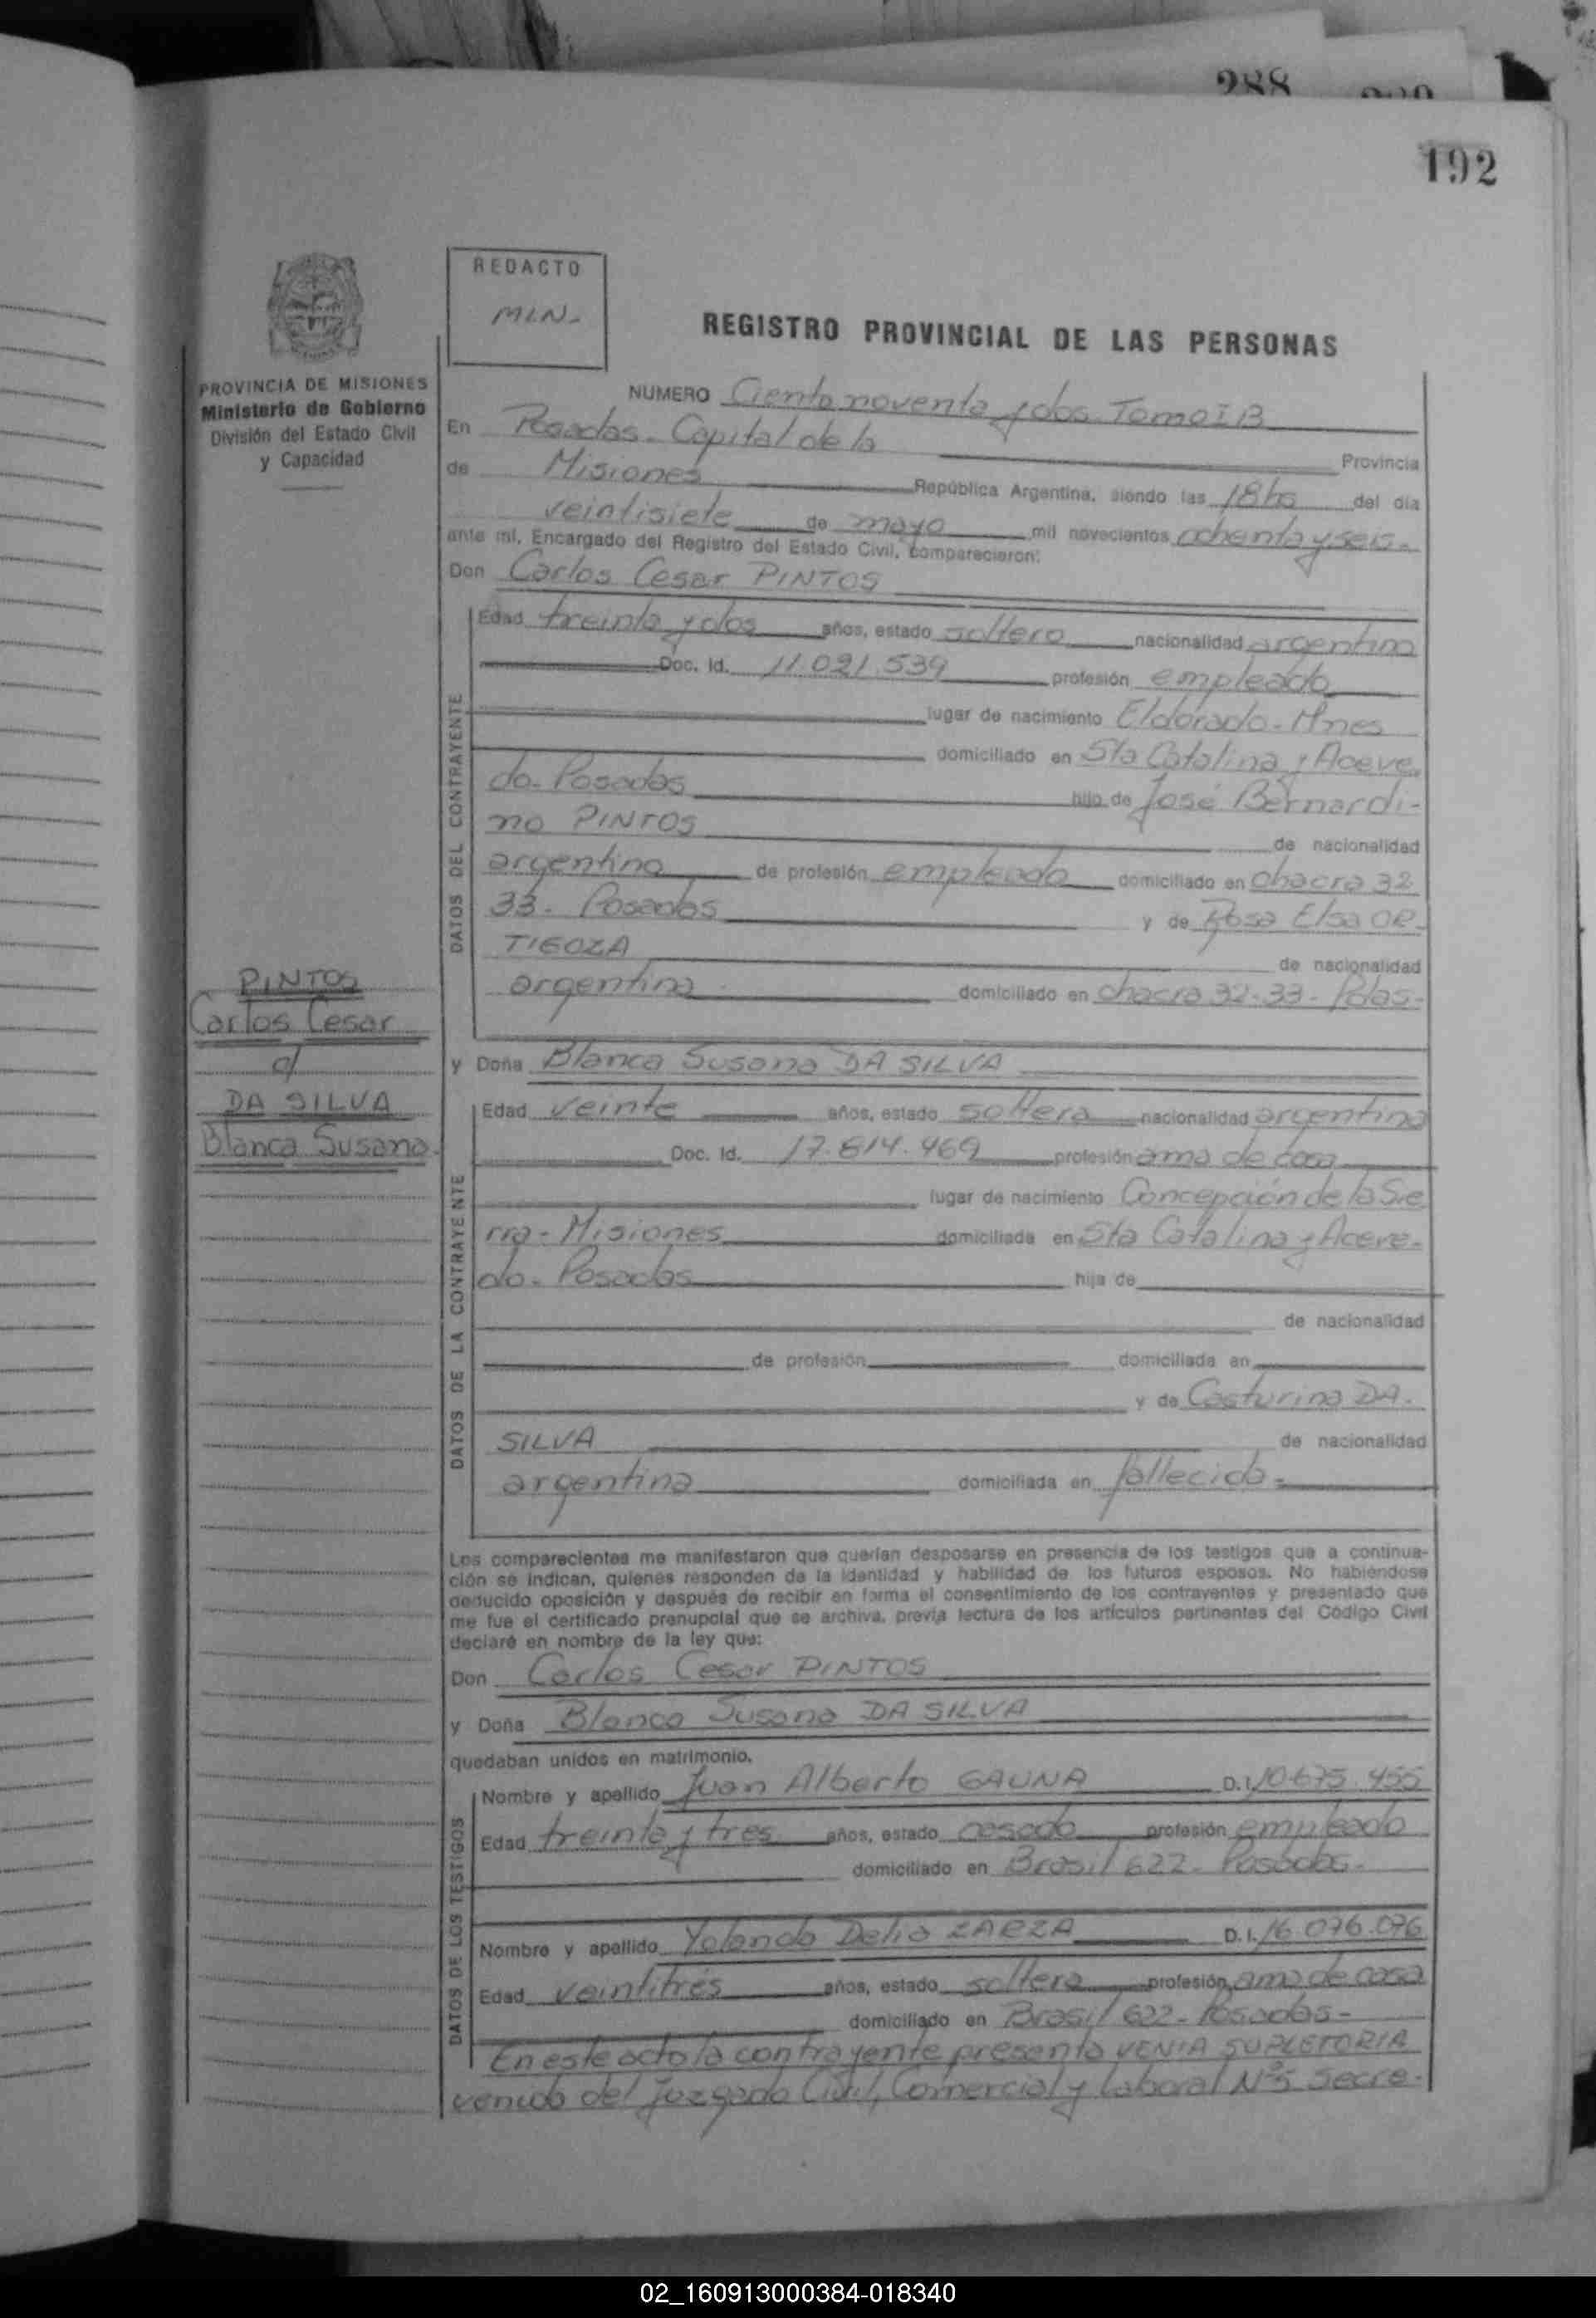 288
192
REDACTO
MIN-
REGISTRO PROVINCIAL DE LAS PERSONAS
PROVINCIA DE MISIONES
Ministerio de Gobierno
División del Estado Civil
y Capacidad
NUMERO Ciento noventa y dos Tomo I B
En Posadas. Capital de la Provincia
de Misiones República Argentina, siendo las 18 hs del día
veintisiete de mayo mil novecientos ochenta y seis-
ante mí, Encargado del Registro del Estado Civil, comparecieron:
Don Carlos Cesar PINTOS
DATOS DEL CONTRAYENTE
Edad treinta y dos años, estado soltero nacionalidad argentina
Doc. Id. 11.021.539 profesión empleado
lugar de nacimiento Eldorado-Mnes
domiciliado en Sta Catalina y Aceve
do-Posadas hijo de José Bernardi-
no PINTOS de nacionalidad
argentina de profesión empleado domiciliado en chacra 32
33- Posadas y de Rosa Elsa OR-
TIGOZA de nacionalidad
argentina domiciliado en chacra 32-33- Pdas-
PINTOS
Carlos Cesar
c/
DA SILVA
Blanca Susana-
y Doña Blanca Susana DA SILVA
DATOS DE LA CONTRAYENTE
Edad veinte años, estado soltera nacionalidad argentina
Doc. Id. 17.614.469 profesión ama de casa
lugar de nacimiento Concepción de la Sie
rra-Misiones domiciliada en Sta Catalina y Aceve-
do-Posadas hija de
de nacionalidad
de profesión domiciliada en
y de Casturina DA-
SILVA de nacionalidad
argentina domiciliada en fallecida-
Los comparecientes me manifestaron que querían desposarse en presencia de los testigos que a continua-
ción se indican, quienes responden de la identidad y habilidad de los futuros esposos. No habiéndose
deducido oposición y después de recibir en forma el consentimiento de los contrayentes y presentado que
me fue el certificado prenupcial que se archiva, previa lectura de los artículos pertinentes del Código Civil
declaré en nombre de la ley que:
Don Carlos Cesar PINTOS
y Doña Blanca Susana DA SILVA
quedaban unidos en matrimonio.
DATOS DE LOS TESTIGOS
Nombre y apellido Juan Alberto GAUNA D.I. 10.675.455
Edad treinta y tres años, estado casado profesión empleado
domiciliado en Brasil 622- Posadas-
Nombre y apellido Yolanda Delia ZARZA D.I. 16.076.076
Edad veintitrés años, estado soltera profesión ama de casa
domiciliado en Brasil 622- Posadas-
En este acto la contrayente presenta VENIA SUPLETORIA
venida del Juzgado Civil, Comercial y Laboral Nº5 Secre-
02_160913000384-018340